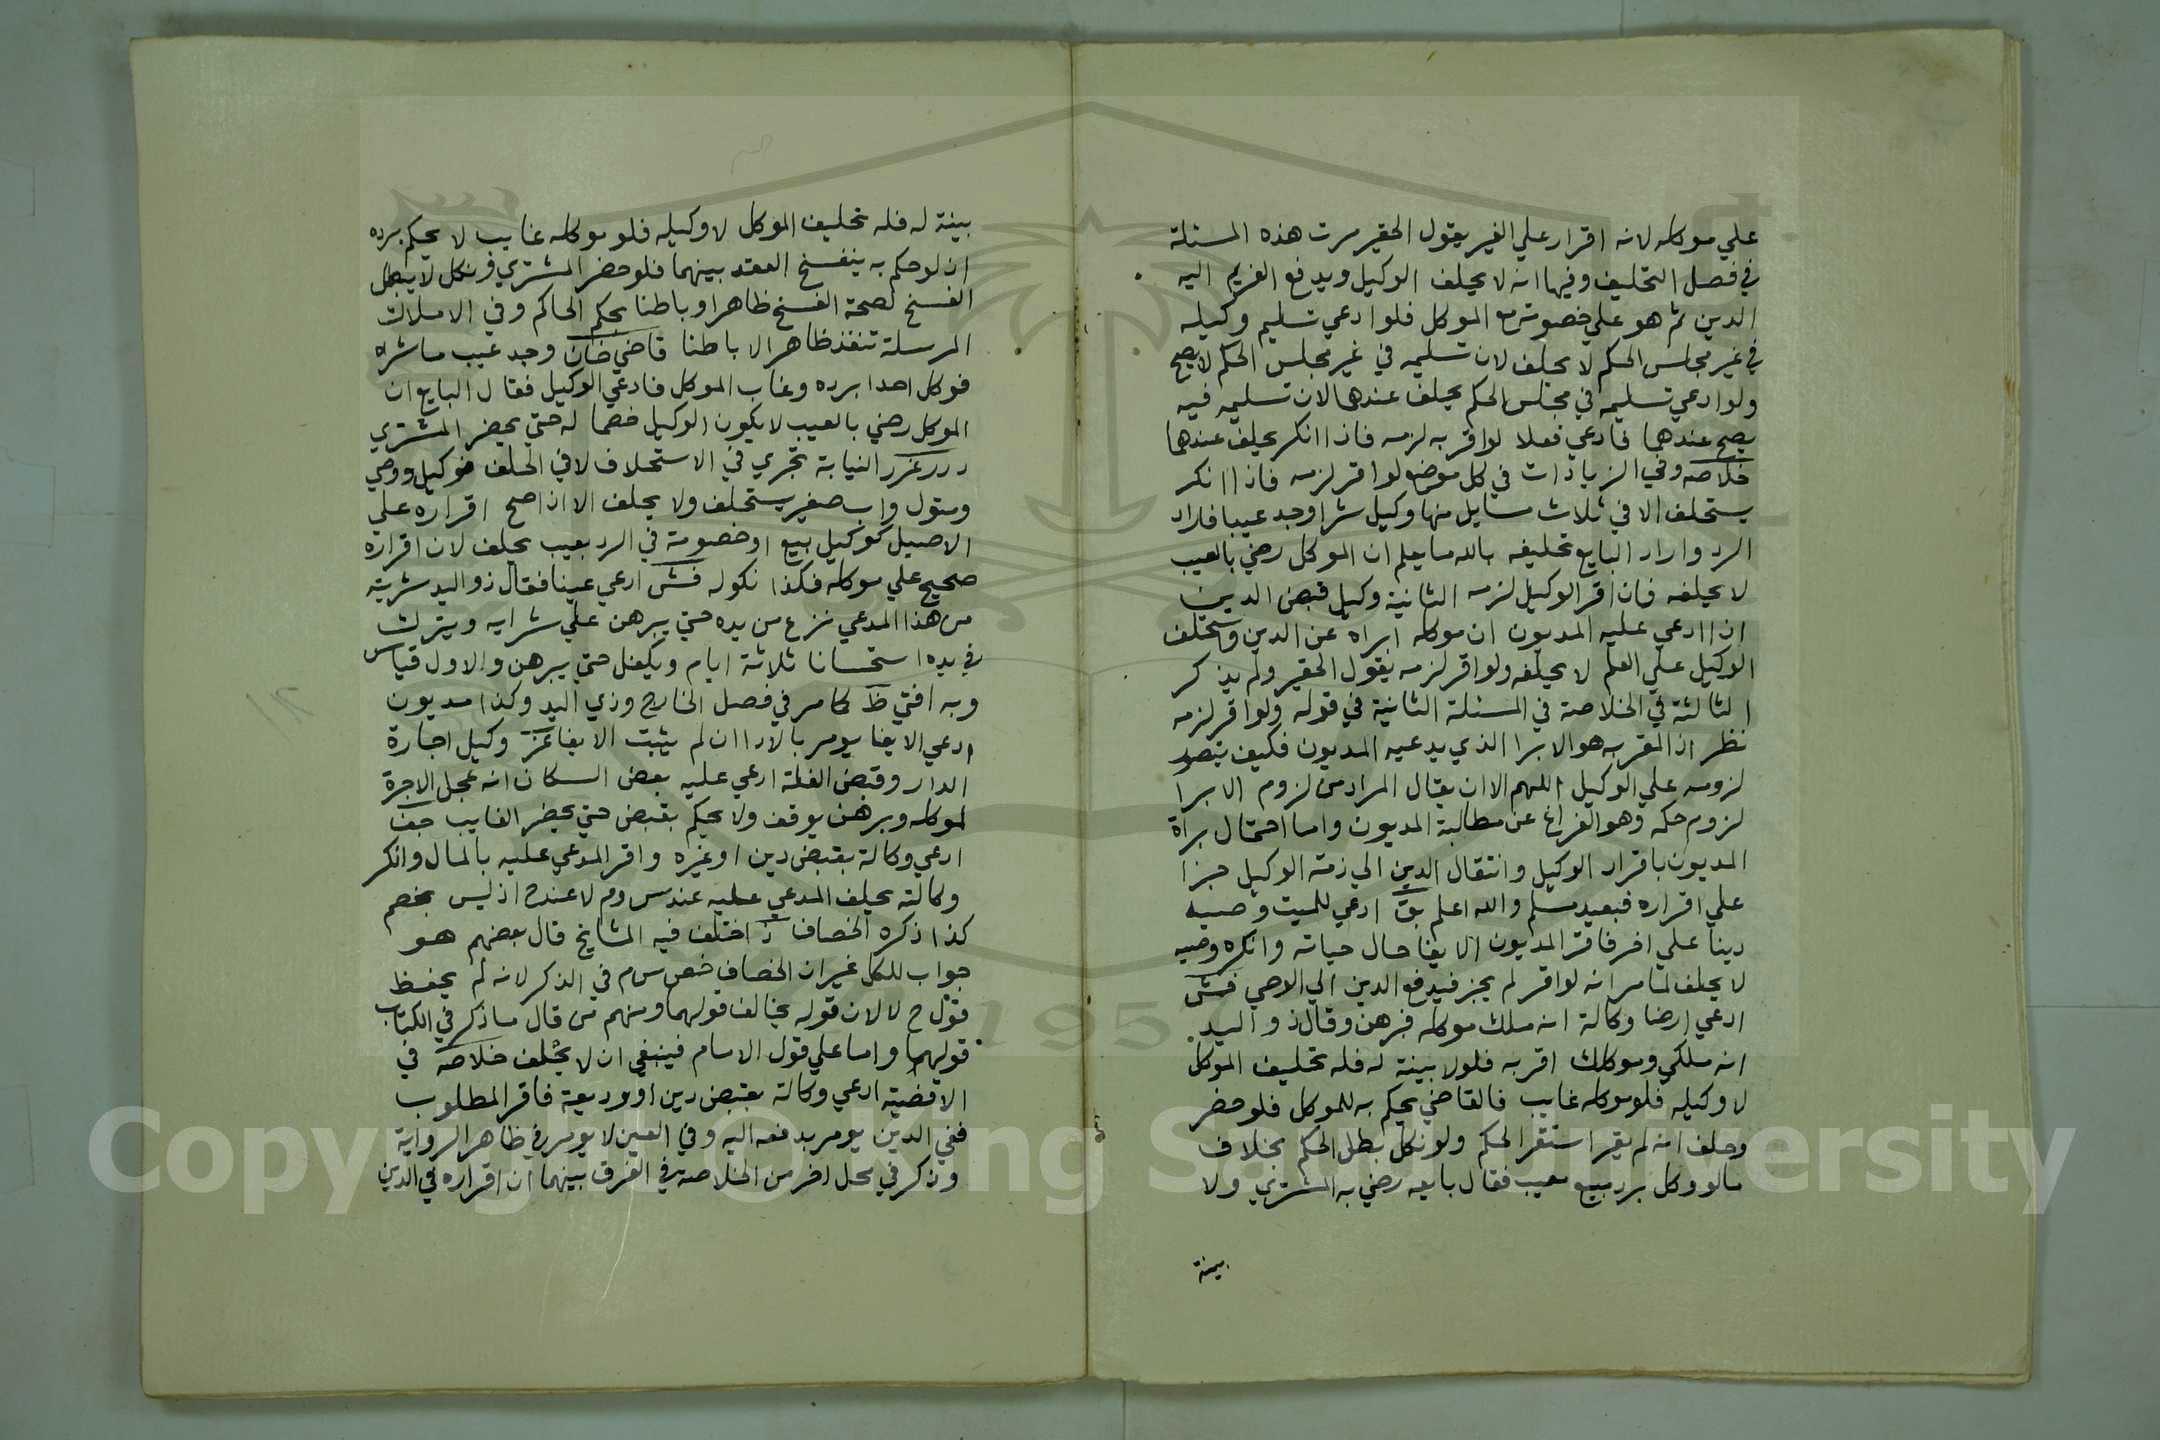 علي موكله لانه اقرار علي الغير يقول الحقير مرت هذه المسئلة
في فصل التحليف وفيها انه لا يحلف الوكيل ويدفع الغريم اليه
الدين ثم هو علي خصومته مع الموكل فلو ادعي تسليم وكيله
في غير مجلس الحكم لا يحلف لان تسليمه في غير مجلس الحكم لا يصح
ولو ادعي تسليمه في مجلس الحكم يحلف عندهما لان تسليمه فيه
يصح عندهما فادعي فعلا لو اقر به لزمه فاذا انكر يحلف عندهما
خلاصه وفي الزيادات في كل موضع لو اقر لزمه فاذا انكر
يستحلف الا في ثلاث مسايل منها وكيل شرا وجد عيبا فاراد
الرد واراد البايع تحليفه بالله ما يعلم ان الموكل رضي بالعيب
لا يحلفه فان اقر الوكيل لزمه الثانية وكيل قبض الدين
اذا ادعي عليه المديون ان موكله ابراه عن الدين واستحلف
الوكيل علي العلم لا يحلفه ولو اقر لزمه يقول الحقير ولم يذكر
الثالثة في الخلاصة في المسئلة الثانية في قوله ولو اقر لزمه
نظر اذ المقر به هو الابرا الذي يدعيه المديون فكيف يتصور
لزومه علي الوكيل اللهم الا ان يقال المراد من لزوم الابرا
لزوم حكمه وهو الفراغ عن مطالبة المديون واما احتمال براة
المديون باقرار الوكيل وانتقال الدين الي ذمة الوكيل جبرا
علي اقراره فبعيد مسلم والله اعلم بق ادعي للميت وصيه
دينا علي اخر فاقر المديون الايفا حال حياته وانكره وصيه
لا يحلف لما مر انه لو اقر لم يجز فيدفع الدين الي الاصي فش
ادعي ارضا وكالة انه ملك موكله فبرهن وقال ذو اليد
انه ملكي وموكلك اقر به فلو لا بينة له فله تحليف الموكل
لا وكيله فلو موكله غايب فالقاضي يحكم به للموكل فلو حضر
وحلف انه لم يقر استقر الحكم ولو نكل بطل الحكم بخلاف
مالو وكل برد مبيع معيب فقال بايعه رضي به المشتري ولا
بينة
بينة له فله تحليف الموكل لا وكيله فلو موكله غايب لا يحكم برده
اذ لو حكم به ينفسخ العقد بينهما فلو حضر المشتري ونكل لا يبطل
الفسخ لصحة الفسخ ظاهرا وباطنا بحكم الحاكم وفي الاملاك
المرسلة تنفذ ظاهرا لا باطنا قاضي خان وجد عيب ما شراه
فوكل احدا برده وغاب الموكل فادعي الوكيل فقال البايع ان
الموكل رضي بالعيب لا يكون الوكيل خصما له حتي يحضر المشتري
درر غرر النيابة تجري في الاستحلاف لا في الحلف فوكيل ووصي
ومتول واب صغير يستحلف ولا يحلف الا اذا صح اقراره علي
الاصيل كوكيل بيع او خصومة في الرد بعيب يحلف لان اقراره
صحيح علي موكله فكذا نكوله فش ادعي عينا فقال ذو اليد شريته
من هذا المدعي نزع من يده حتي يبرهن علي شرايه ويترك
في يده استحسانا ثلاثة ايام ويكفل حتي يبرهن والاول قياس
وبه افتي ظ كما مر في فصل الخارج وذي اليد وكذا مديون
ادعي الايفا يومر بالادا ان لم يثبت الايفا عز وكيل اجارة
الدار وقبض الغلة ادعي عليه بعض السكان انه عجل الاجرة
لموكله وبرهن يوقف ولا يحكم بقبض حتي يحضر الغايب جف
ادعي وكالة بقبض دين او غيره واقر المدعي عليه بالمال وانكر
وكالته يحلف المدعي عليه عند س وم لا عند ح اذ ليس بخصم
كذا ذكره الخصاف ذ اختلف فيه المشايخ قال بعضهم هو
جواب للكل غير ان الخصاف خص س م في الذكر لانه لم يحفظ
قول ح لا لان قوله يخالف قولهما ومنهم من قال ما ذكر في الكتاب
قولهما واما علي قول الامام فينبغي ان لا يحلف خلاصه في
الاقضية ادعي وكالة بقبض دين او وديعة فاقر المطلوب
ففي الدين يومر بدفعه اليه وفي العين لا يومر في ظاهر الرواية
وذكر في محل اخر من الخلاصه في الفرق بينهما ان اقراره في الدين
Copyright © King Saud University
1957